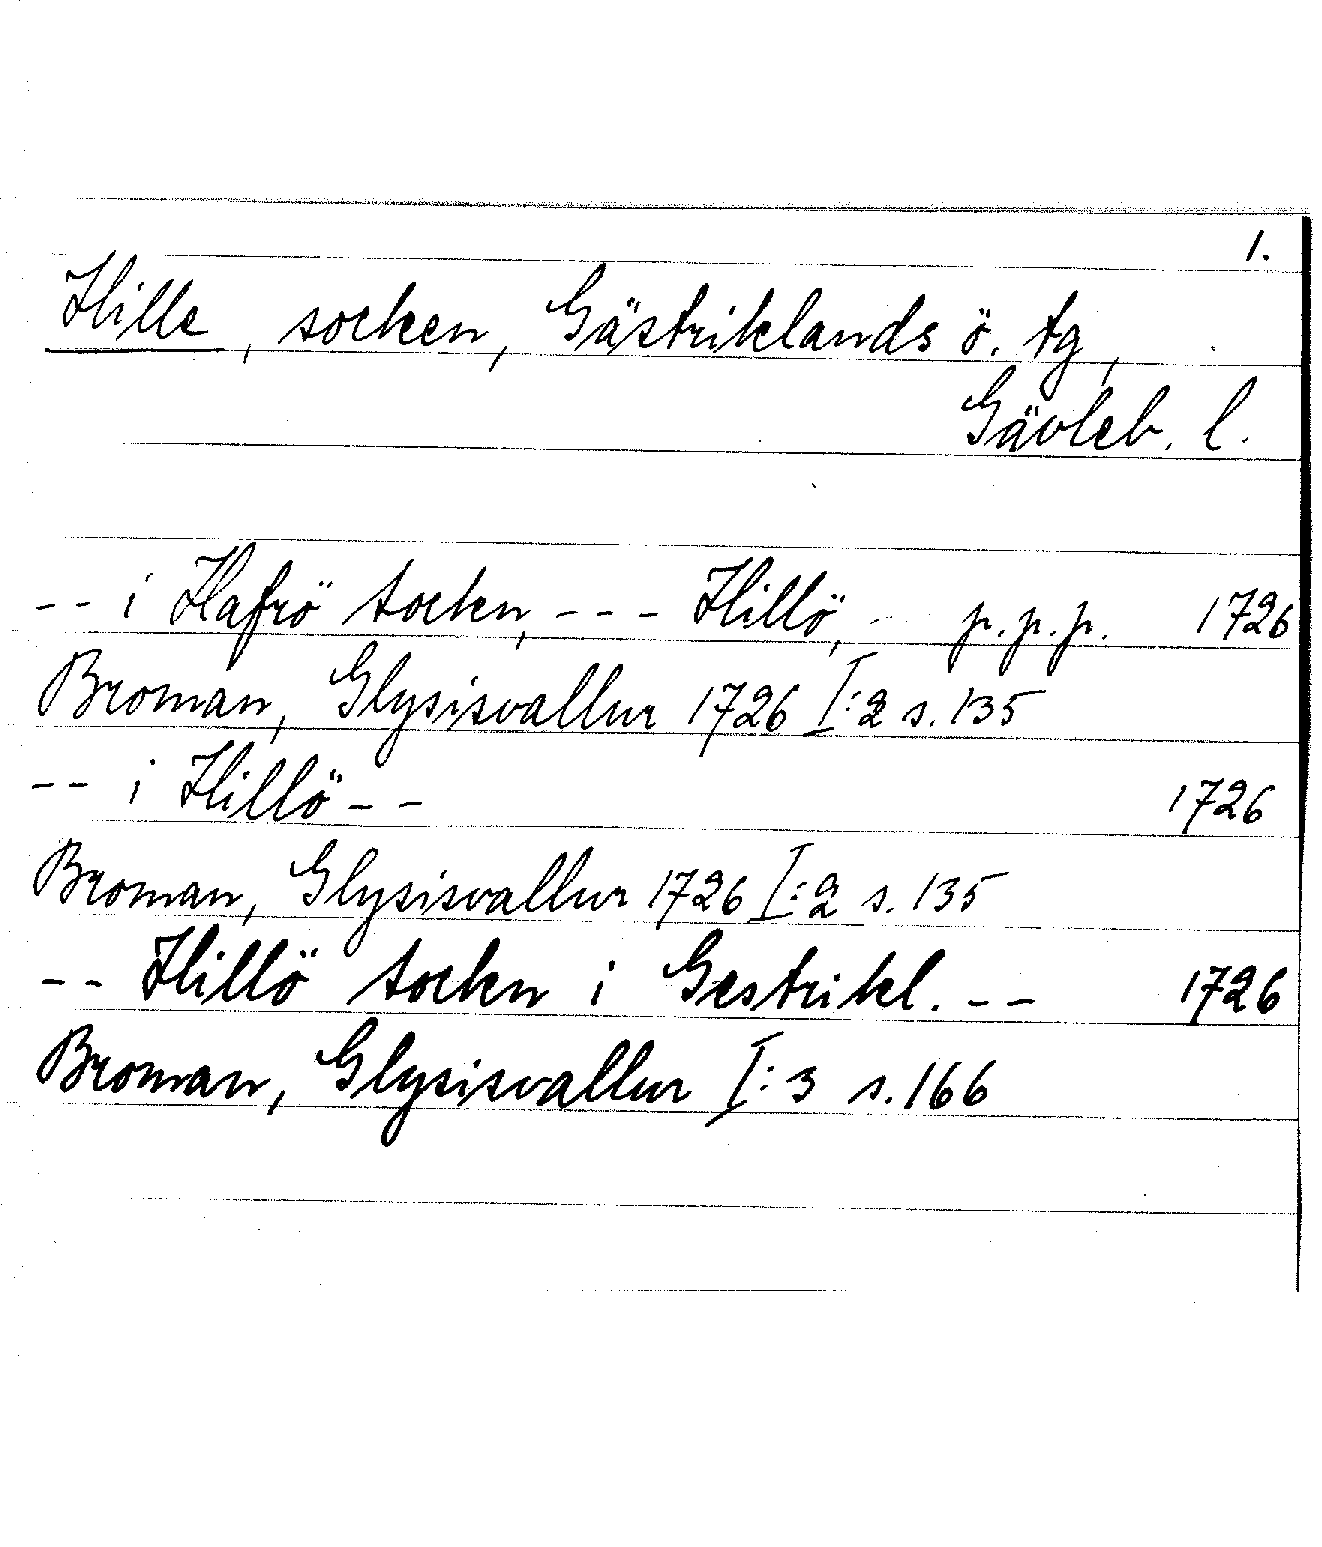 1.
Hille, socken, Gästriklands ö. tg,
Gävleb. l.
-- i Hafrö Socken, --- Hillö, - p.p.p. 1726
Broman, Glysisvallur 1726 I:2 s. 135
-- i Hillö -- 1726
Broman, Glysisvallur 1726 I:2 s. 135
-- Hillö Socken i Gestrikl. -- 1726
Broman, Glysisvallur I:3 s. 166